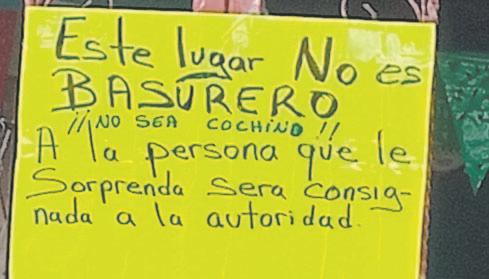 Este lugar No es
BASURERO
¡¡¡NO SEA COCHINO!!
A la persona que le
Sorprenda Sera consig-
nada a la autoridad.